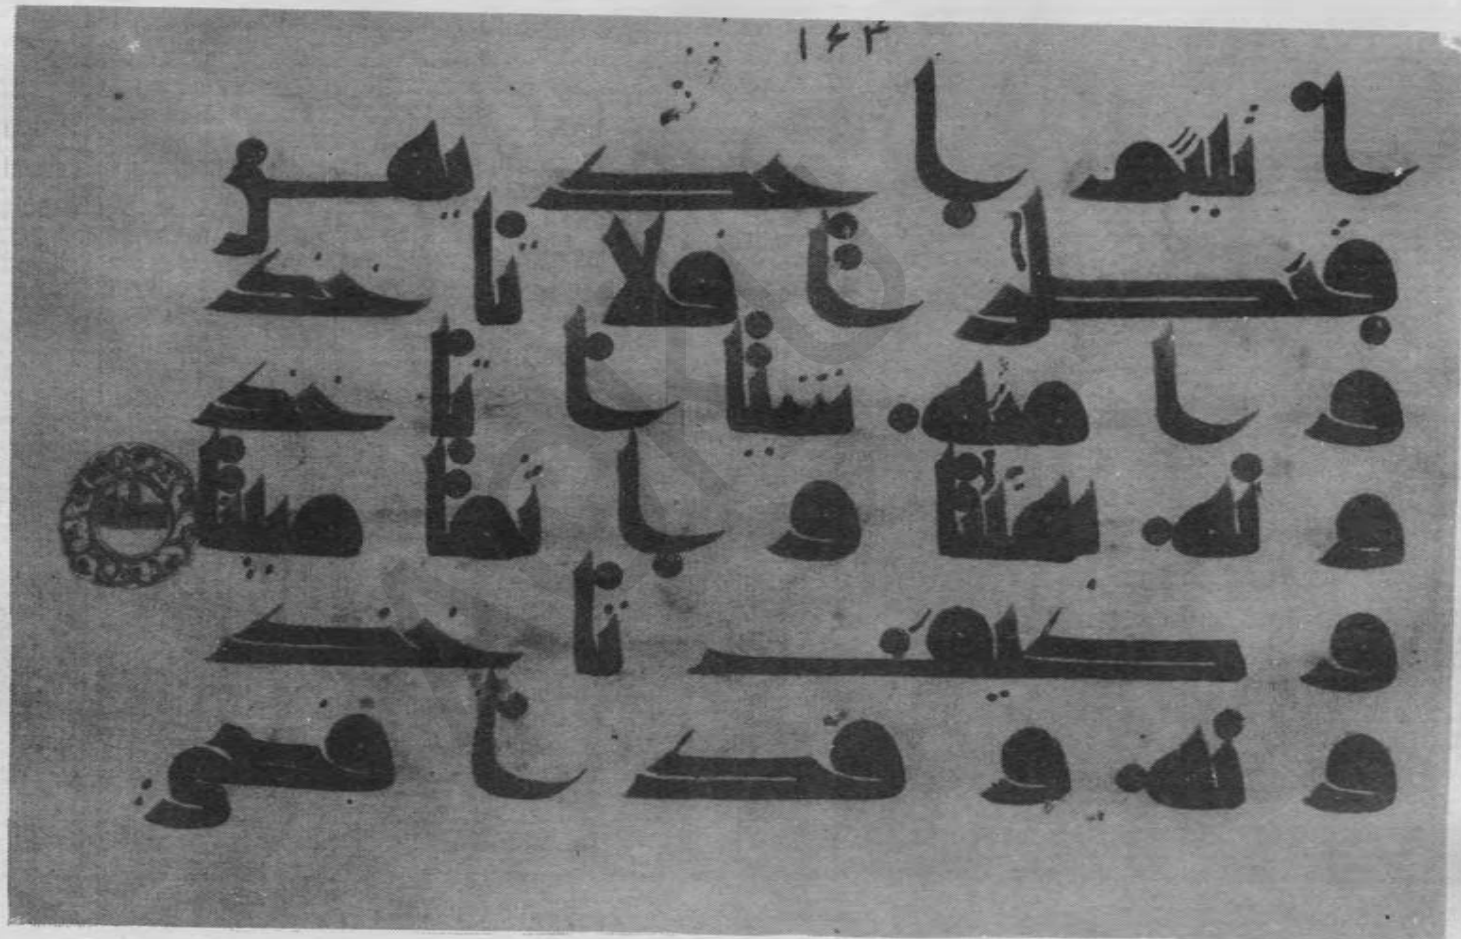 ۱۶۳
ا تيتم ا حد يهن
قنطر ا فلا تا خذ
و ا منه شيا ا تا خذ
و نه بهتنا و ا ثما مبينا
و كيف تا خذ
و نه و قد ا فضى